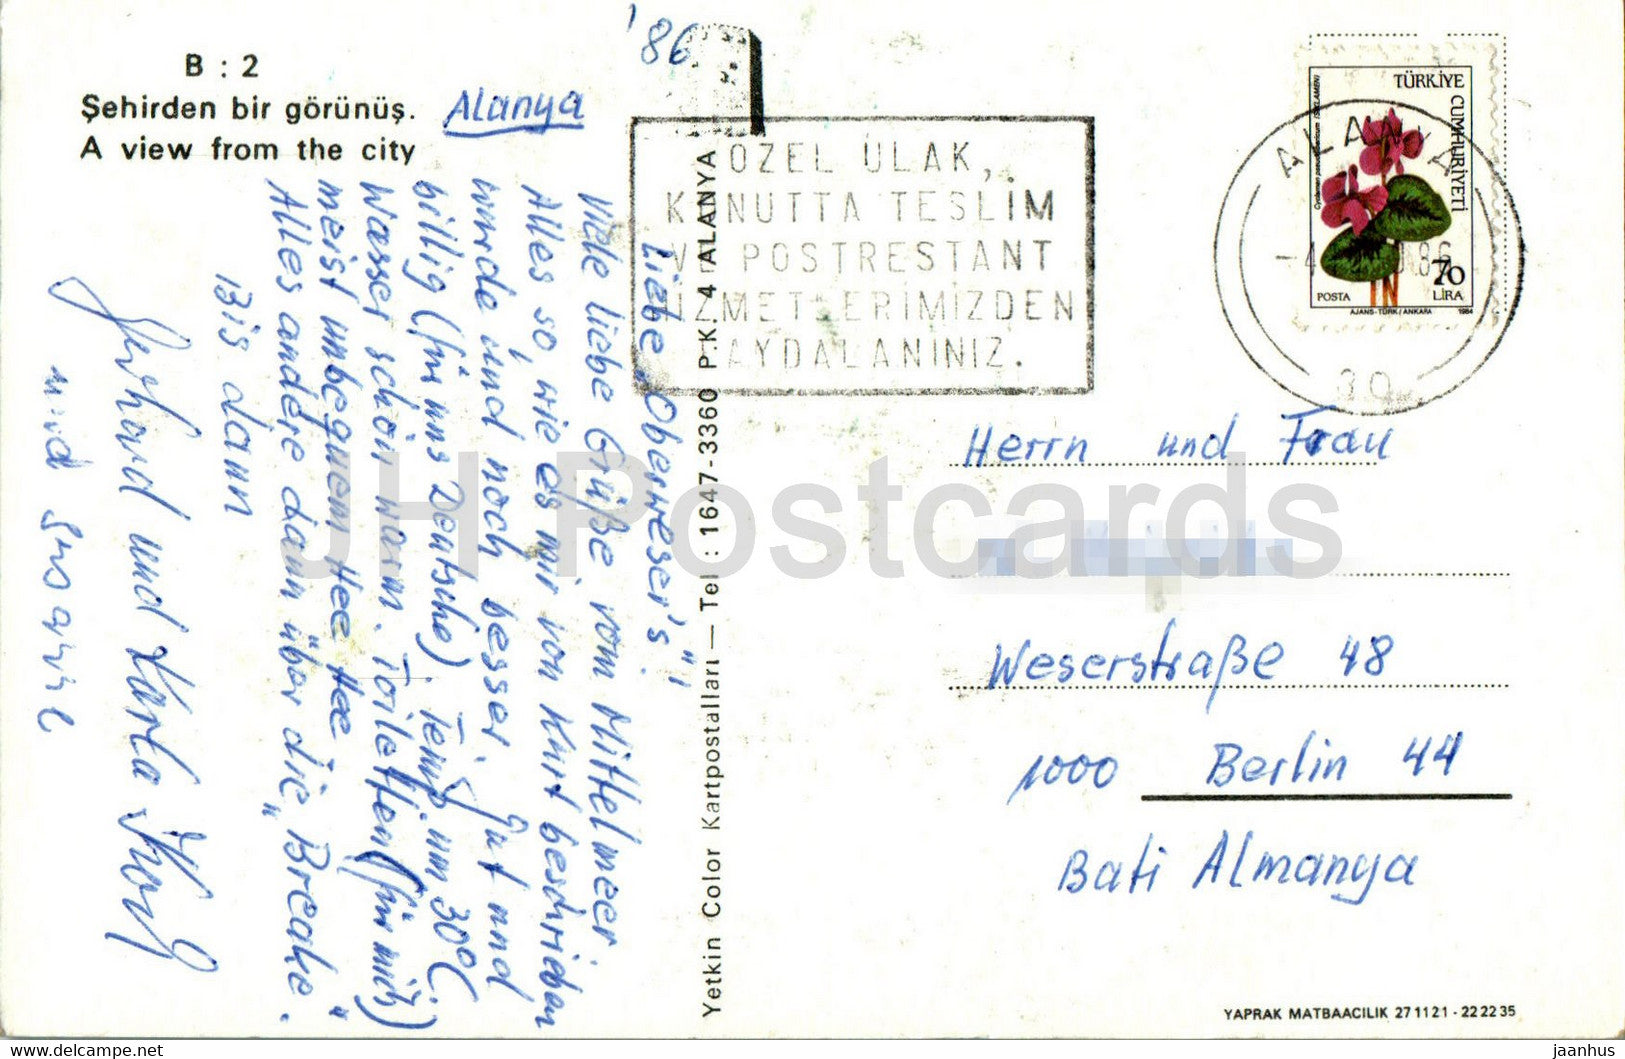 '86
B : 2
Şehirden bir görünüş. Alanya
A view from the city
Liebe "Oberweser's"!
Viele liebe Grüße vom Mittelmeer.
Alles so, wie es mir von Kurt beschrieben
wurde und noch besser. Gut und
billig (für uns Deutsche). Temp. um 30°C,
Wasser schön warm. Toiletten (für mich)
meist unbequem Hee Hee
Alles andere dann über die "Breake".
Bis dann
Gerhard und Karla
und
Yetkin Color Kartpostalları — Tel : 1647-3360 P.K. 4 ALANYA
ÖZEL ULAK,
KONUTTA TESLİM
VE POSTRESTANT
HİZMETLERİMİZDEN
FAYDALANINIZ.
ALANYA
TÜRKİYE CUMHURİYETİ
70
LİRA
POSTA
AJANS-TÜRK / ANKARA 1984
Herrn und Frau
Weserstraße 48
1000 Berlin 44
Bati Almanya
YAPRAK MATBAACILIK 27 11 21 - 22 22 35
JH Postcards
delcampe.net
jaanhus